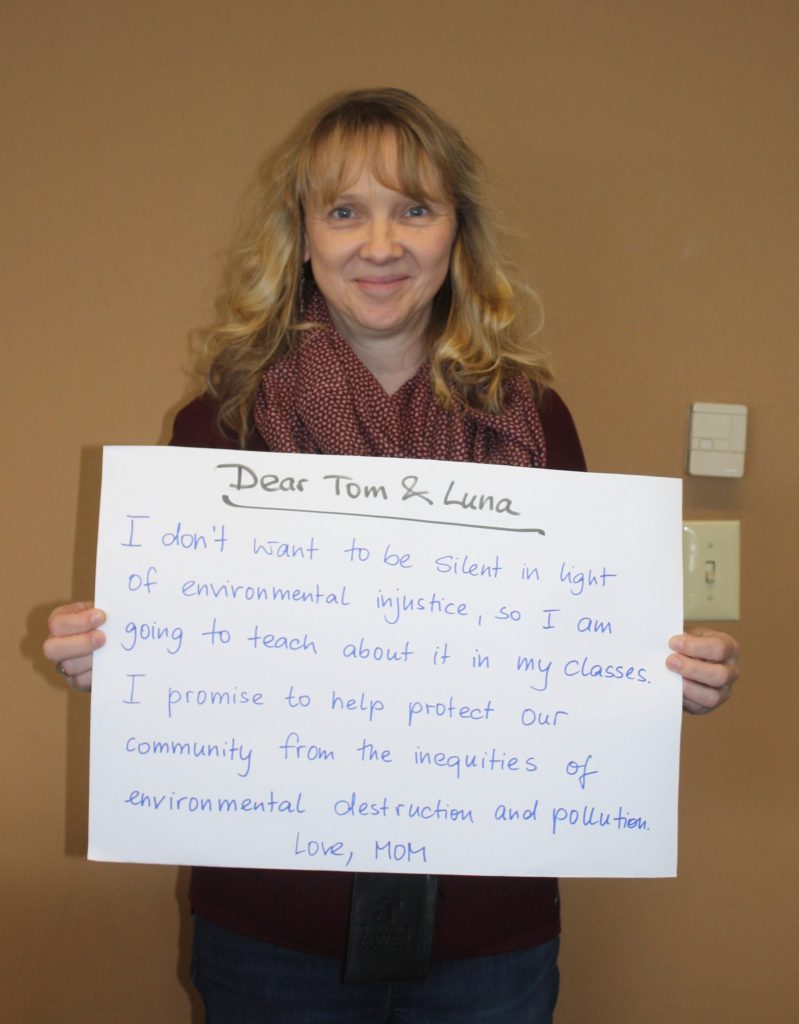 Dear Tom & Luna
I don't want to be silent in light
of environmental injustice, so I am
going to teach about it in my classes.
I promise to help protect our
community from the inequities of
environmental destruction and pollution.
Love, MOM